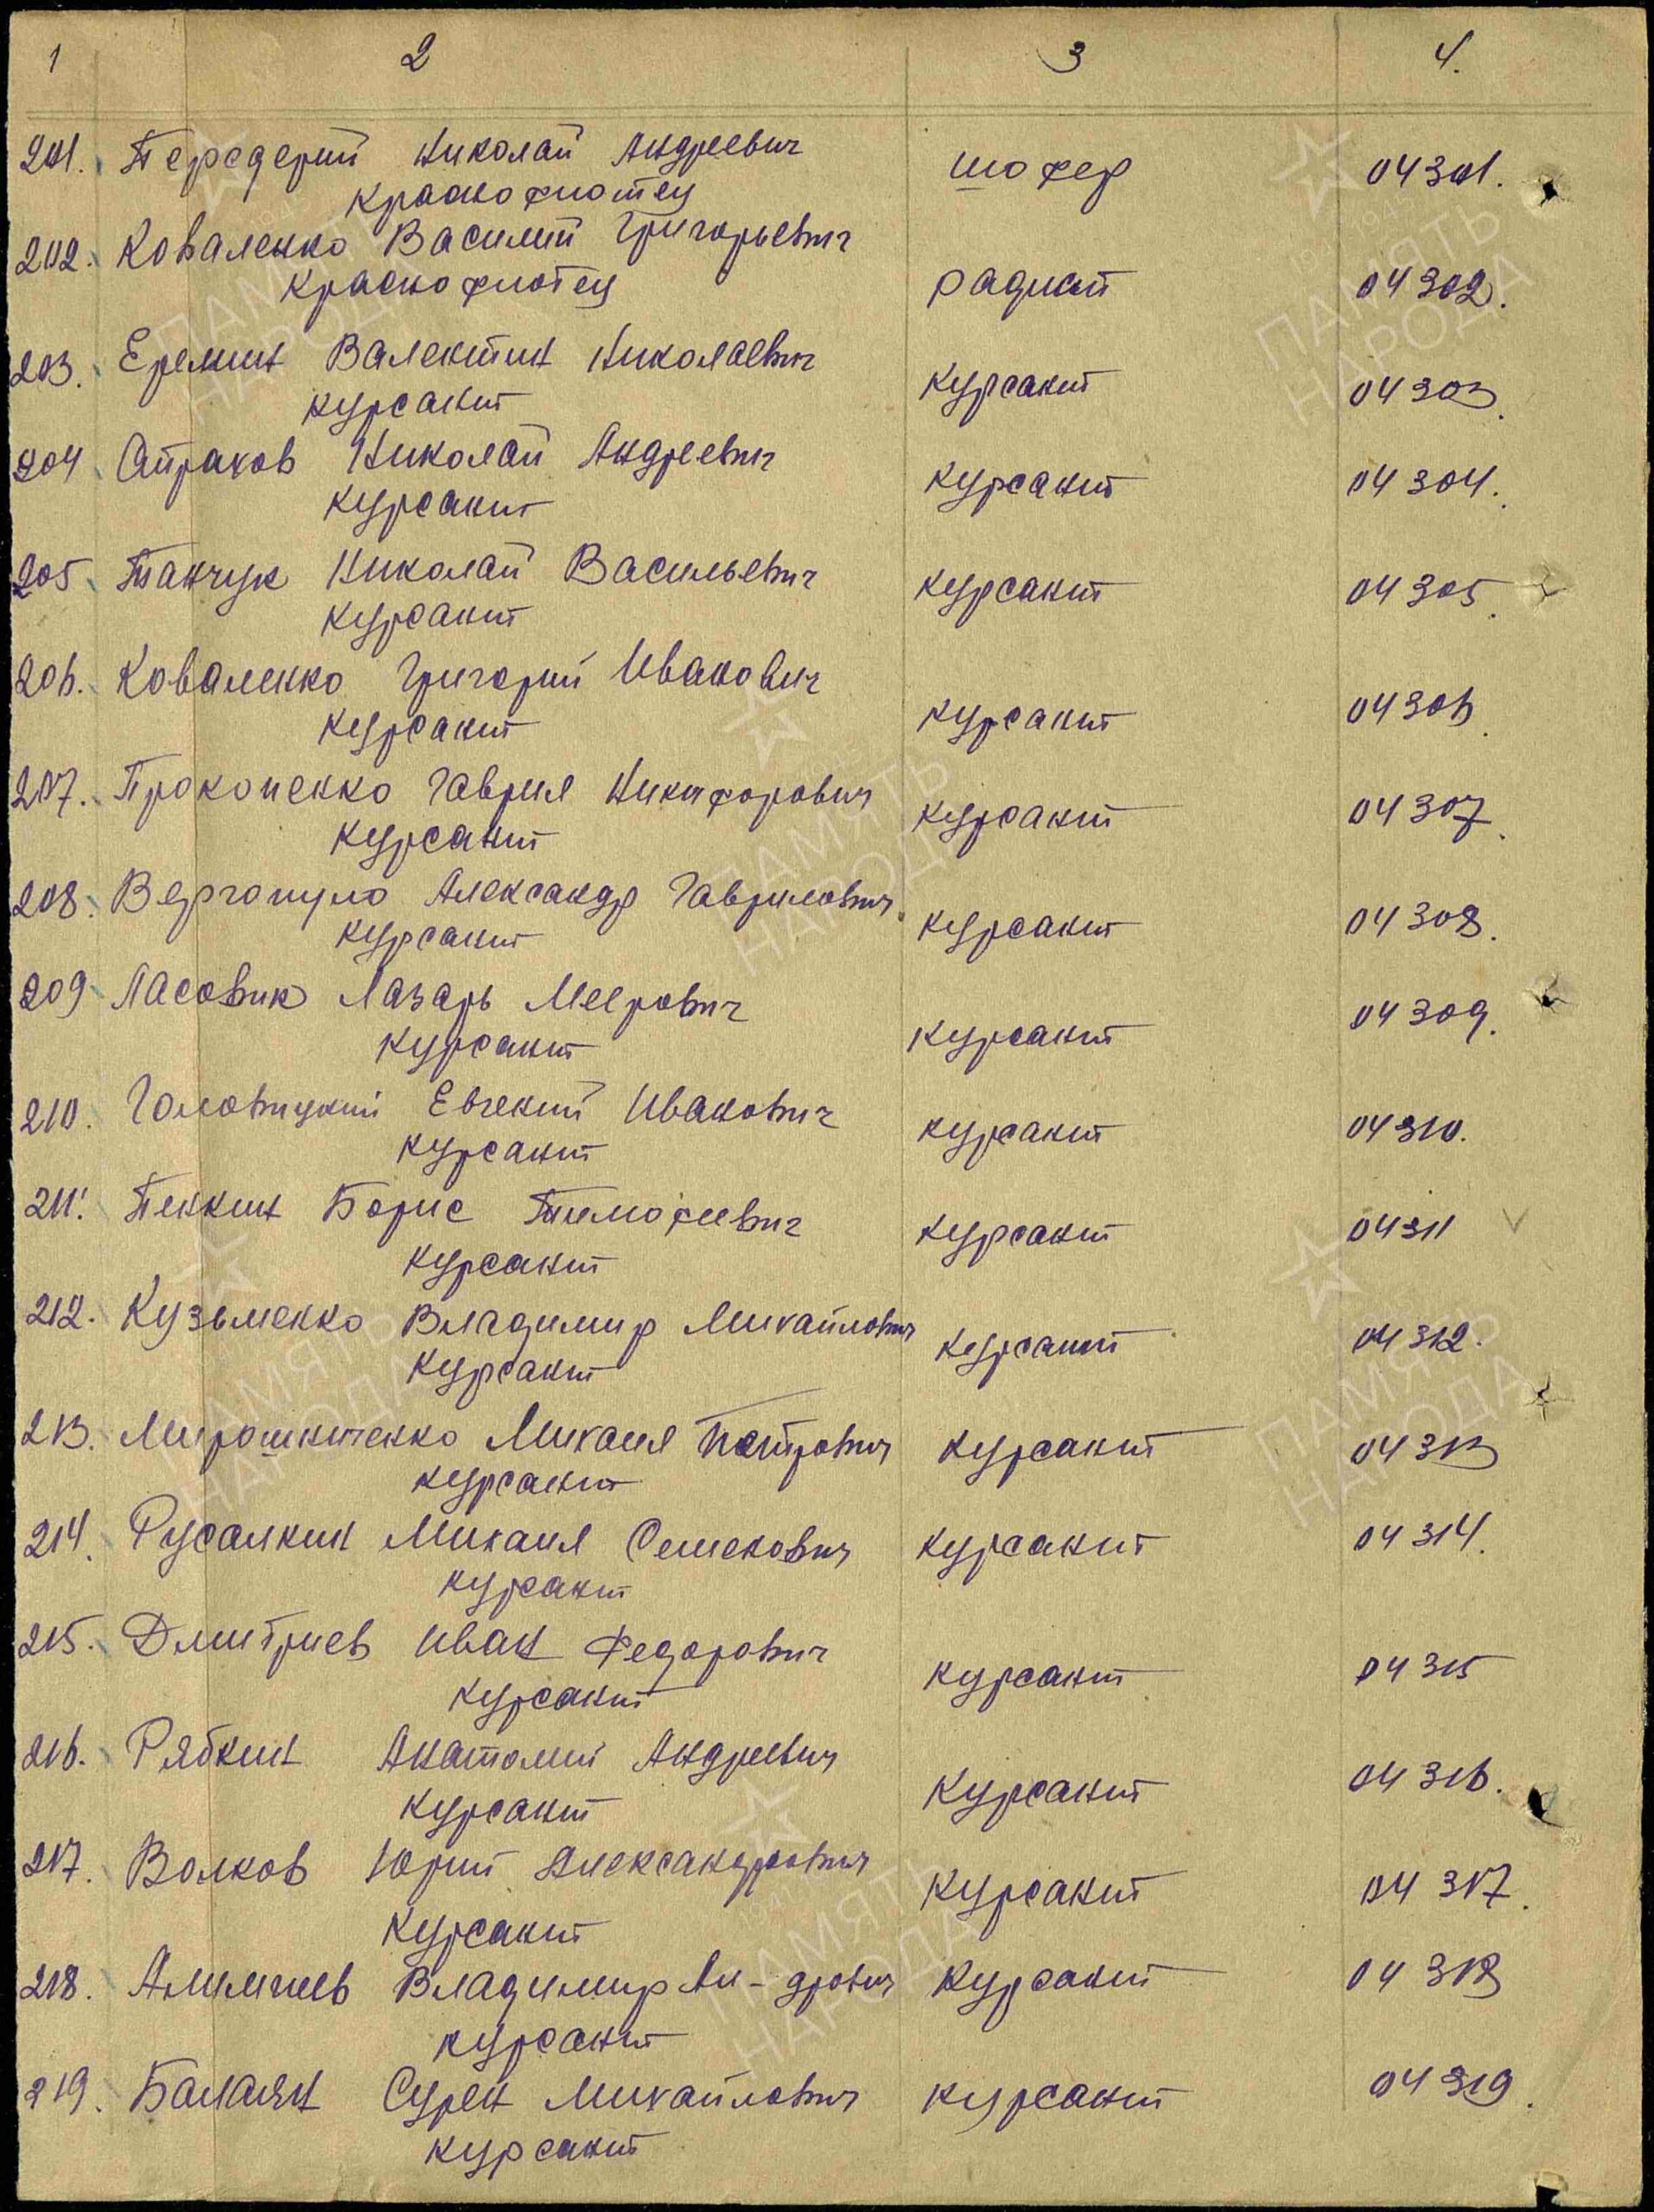 1 2 3 4.
201. Передерий Николай Андреевич шофер 04301.
краснофлотец
202. Коваленко Василий Григорьевич
краснофлотец радист 04302.
203. Еремин Валентин Николаевич
курсант курсант 04303.
204 Николай Андреевич
курсант курсант 04304.
205 Танчук Николай Васильевич курсант 04305.
курсант
206. Коваленко Григорий Иванович
курсант курсант 04306.
207. Прокопенко Гаврил Никифорович курсант 04307.
курсант
208. Вергопуло Александр Гаврилович
курсант курсант 04308.
209 Ласовик Лазарь Меерович
курсант курсант 04309.
210. Головицкий Евгений Иванович
курсант курсант 04310.
211. Пенкин Борис Тимофеевич курсант 04311
курсант
212. Кузьменко Владимир Михайлович курсант 04312.
курсант
213. Мирошниченко Михаил Петрович курсант 04313
курсант
214. Русалкин Михаил Семенович курсант 04314.
курсант
215. Дмитриев Иван Федорович
курсант курсант 04315
216. Рябкин Анатолий Андреевич
курсант курсант 04316.
217. Волков Юрий Александрович курсант 04317.
курсант
218. Владимир Ал-дрович курсант 04318
курсант
219. Балаян Сурен Михайлович курсант 04319.
курсант
ПАМЯТЬ
НАРОДА